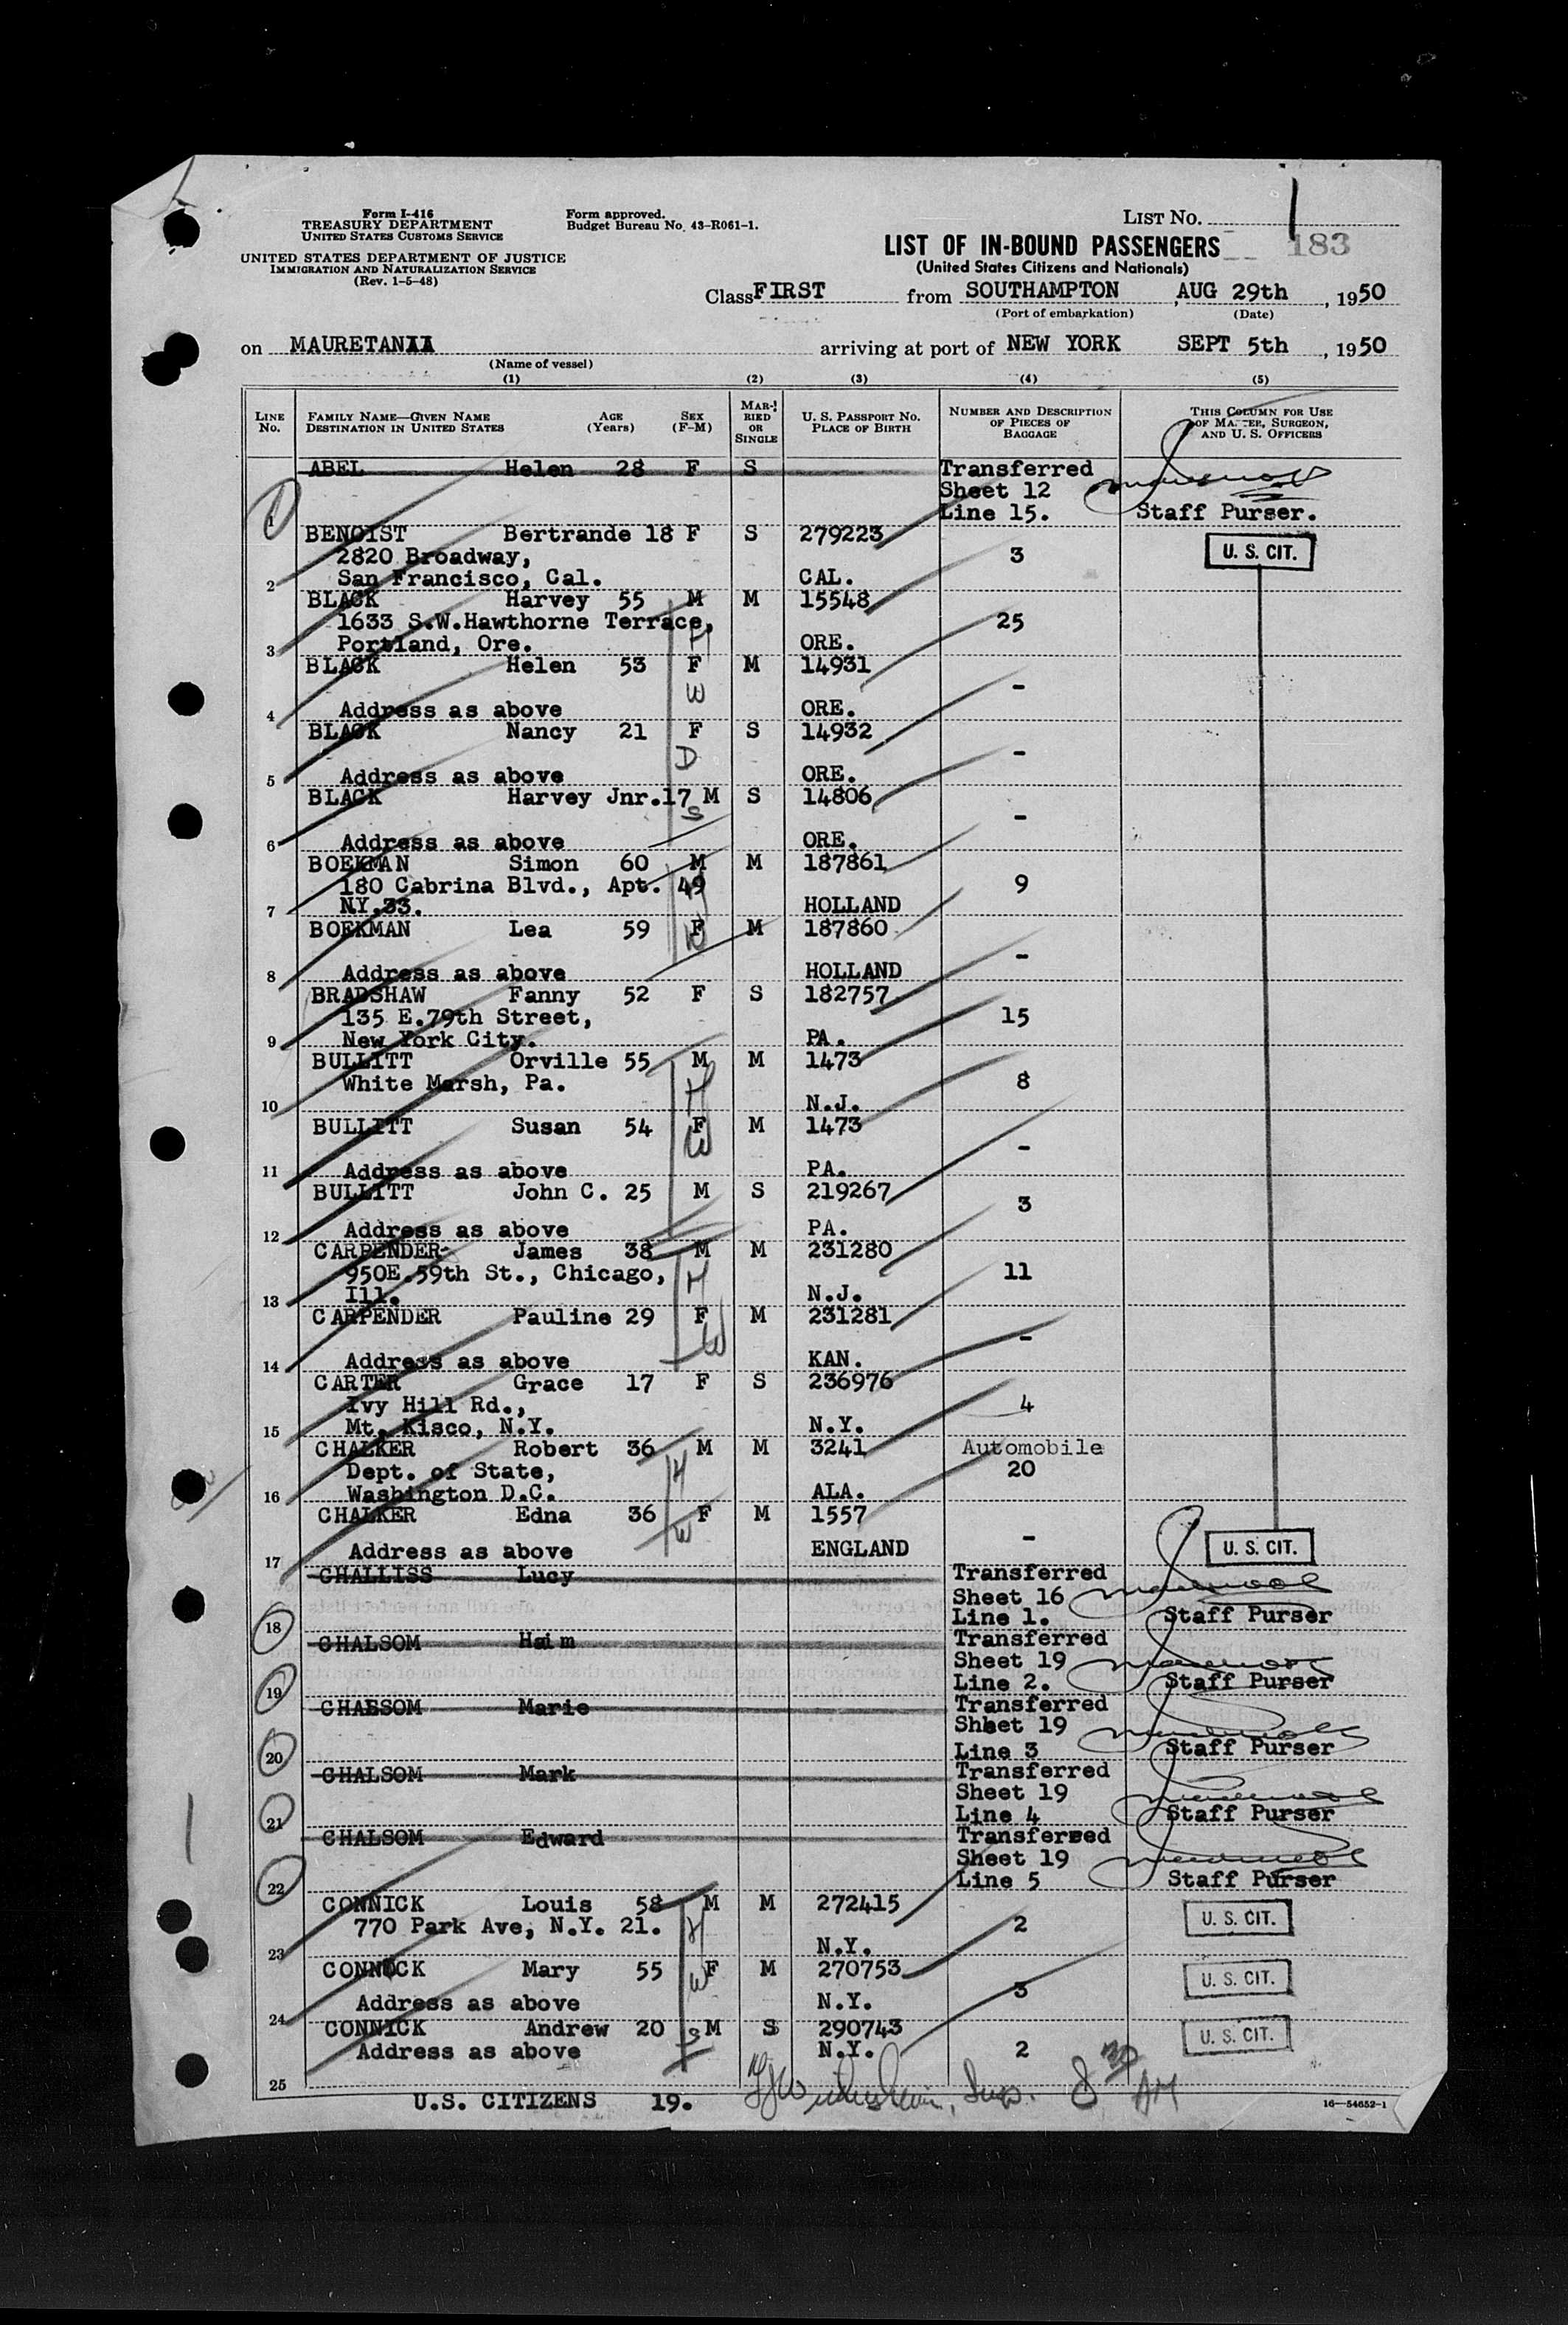 Form I-416
TREASURY DEPARTMENT
UNITED STATES CUSTOMS SERVICE
UNITED STATES DEPARTMENT OF JUSTICE
IMMIGRATION AND NATURALIZATION SERVICE
(Rev. 1-5-48)
Form approved.
Budget Bureau No. 43-R061-1.
LIST NO.
LIST OF IN-BOUND PASSENGERS 183
(United States Citizens and Nationals)
Class FIRST from SOUTHAMPTON, AUG 29th, 1950
(Port of embarkation) (Date)
on MAURETANIA arriving at port of NEW YORK SEPT 5th, 1950
(Name of vessel)
(1) (2) (3) (4) (5)
LINE NO. FAMILY NAME—GIVEN NAME DESTINATION IN UNITED STATES AGE (Years) SEX (F-M) MARRIED OR SINGLE U. S. PASSPORT NO. PLACE OF BIRTH NUMBER AND DESCRIPTION OF PIECES OF BAGGAGE THIS COLUMN FOR USE OF MASTER, SURGEON, AND U. S. OFFICERS
ABEL Helen 28 F S Transferred
Sheet 12
1 Line 15. Staff Purser.
BENOIST Bertrande 18 F S 279223
2820 Broadway, 3 U. S. CIT.
2 San Francisco, Cal. CAL.
BLACK Harvey 55 M M 15548
1633 S.W.Hawthorne Terrace, 25
3 Portland, Ore. H ORE.
BLACK Helen 53 F M 14931
W -
4 Address as above ORE.
BLACK Nancy 21 F S 14932
D -
5 Address as above ORE.
BLACK Harvey Jnr. 17 M S 14806
S -
6 Address as above ORE.
BOEKMAN Simon 60 M M 187861
180 Cabrina Blvd., Apt. 49 9
7 NY.33. H HOLLAND
BOEKMAN Lea 59 F M 187860
W -
8 Address as above HOLLAND
BRADSHAW Fanny 52 F S 182757
135 E.79th Street, 15
9 New York City. PA.
BULLITT Orville 55 M M 1473
White Marsh, Pa. H 8
10 N.J.
BULLITT Susan 54 F M 1473
W -
11 Address as above PA.
BULLITT John C. 25 M S 219267
3
12 Address as above PA.
CARPENDER James 38 M M 231280
950E.59th St., Chicago, H 11
13 Ill. N.J.
CARPENDER Pauline 29 F M 231281
W -
14 Address as above KAN.
CARTER Grace 17 F S 236976
Ivy Hill Rd., 4
15 Mt. Kisco, N.Y. N.Y.
CHALKER Robert 36 M M 3241 Automobile
Dept. of State, H 20
16 Washington D.C. ALA.
CHALKER Edna 36 F M 1557
W -
17 Address as above ENGLAND U. S. CIT.
CHALLISS Lucy Transferred
Sheet 16
18 Line 1. Staff Purser
CHALSOM Haim Transferred
Sheet 19
19 Line 2. Staff Purser
CHALSOM Marie Transferred
Sheet 19
20 Line 3 Staff Purser
CHALSOM Mark Transferred
Sheet 19
21 Line 4 Staff Purser
CHALSOM Edward Transferred
Sheet 19
22 Line 5 Staff Purser
CONNICK Louis 58 M M 272415
770 Park Ave, N.Y. 21. H 2 U. S. CIT.
23 N.Y.
CONNICK Mary 55 F M 270753
W 3 U. S. CIT.
24 Address as above N.Y.
CONNICK Andrew 20 S M S 290743 U. S. CIT.
Address as above N.Y. 2
25
U.S. CITIZENS 19. 8 30 AM
16—54652-1